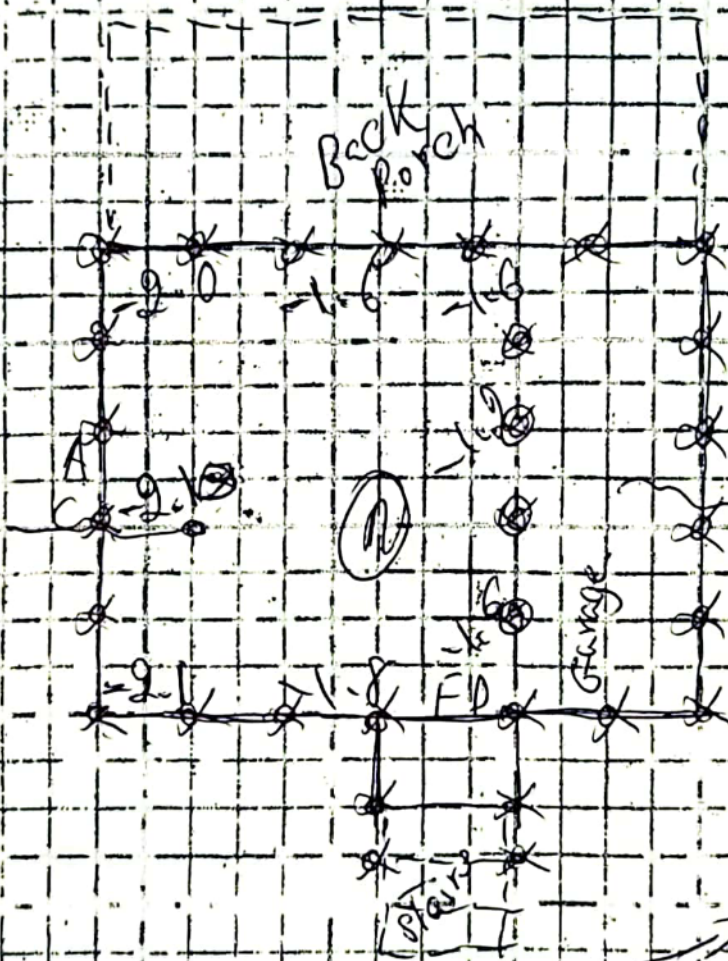 Back
Porch
-2-0
-1-6
-1-6
-1-2
A
C
-2-1
-1-6
Garage
-2-1
-1-8
FD
Stairs